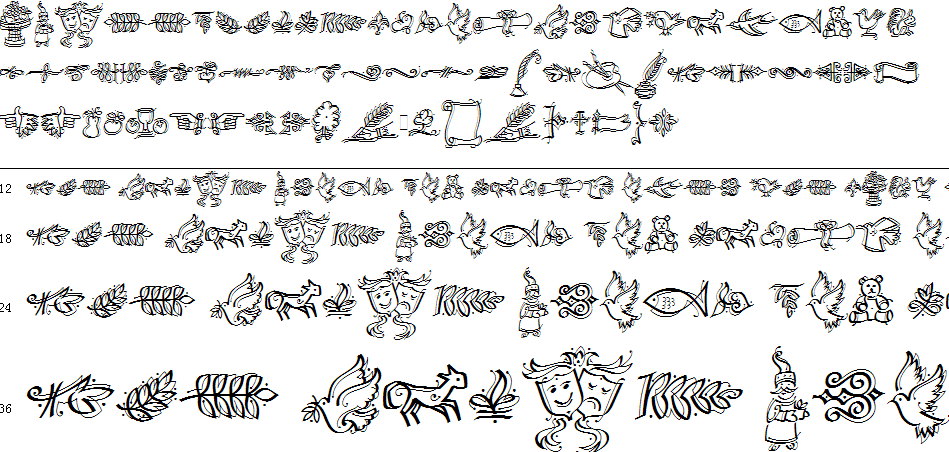 12
18
24
36